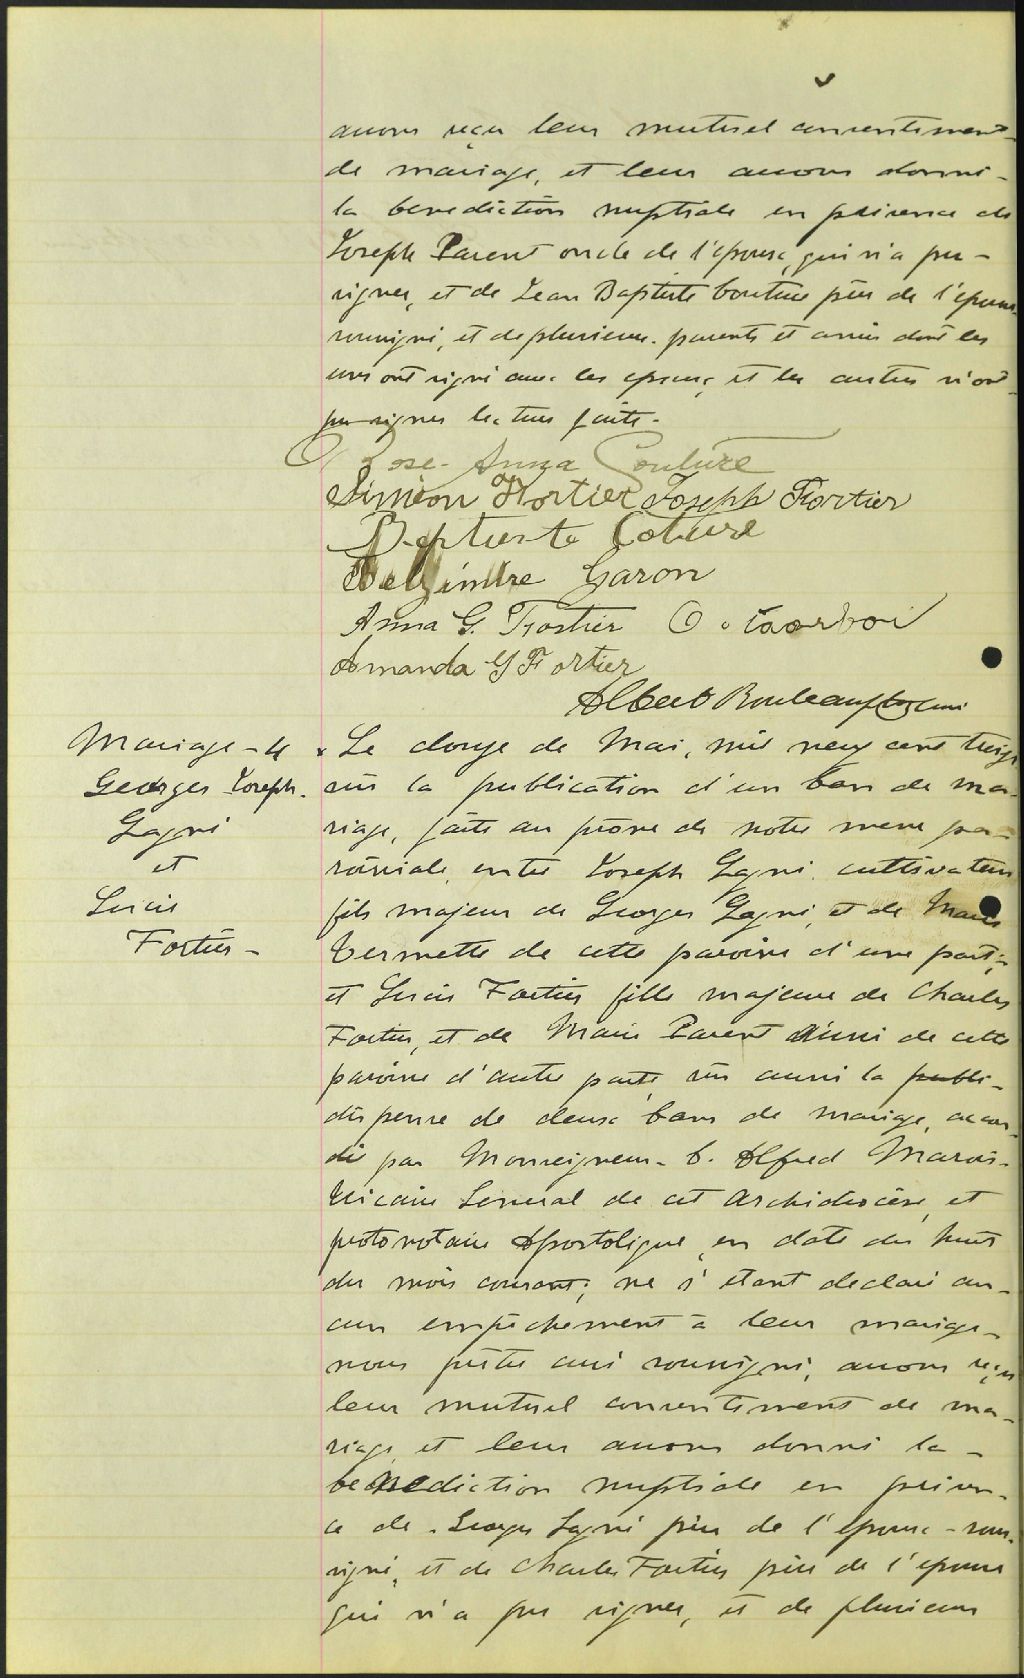 avons reçu leur mutuel consentement
de mariage, et leur avons donné
la benediction nuptiale en présence de
Joseph Parent oncle de l'époux, qui n'a pu
signer, et de Jean Baptiste Couture père de l'épouse
soussigné, et de plusieurs parents et amis dont les
uns ont signé avec les époux, et les autres n'ont
pu signer lecture faite.
Rose-Anna Couture
Siméon Fortier Joseph Fortier
Baptiste Coture
Garon
Anna G. Fortier O.
Amanda G Fortier
Albert Rouleau ptre curé
Mariage-4
Georges Joseph
Gagné
et
Lucie
Fortier-
Le douze de Mai, mil neuf cent treize
vu la publication d'un ban de ma-
riage, faite au prône de notre messe pa-
roissiale, entre Joseph Gagné, cultivateur
fils majeur de Georges Gagné, et de Marie
Vermette de cette paroisse d'une part;
et Lucie Fortier fille majeure de Charles
Fortier, et de Marie Parent aussi de cette
paroisse d'autre part, vu aussi la publi-
dispense de deux bans de mariage, accor-
dé par Monseigneur C. Alfred Marois
Vicaire General de cet Archidiocèse, et
protonotaire Apostolique, en date du huit
du mois courant; ne s'étant declaré au-
cun empêchement à leur mariage
nous prêtre curé soussigné, avons reçu
leur mutuel consentement de ma-
riage, et leur avons donné la
benediction nuptiale en présen-
ce de Georges Gagné père de l'époux - sous-
signé, et de Charles Fortier père de l'épouse
qui n'a pu signer, et de plusieurs